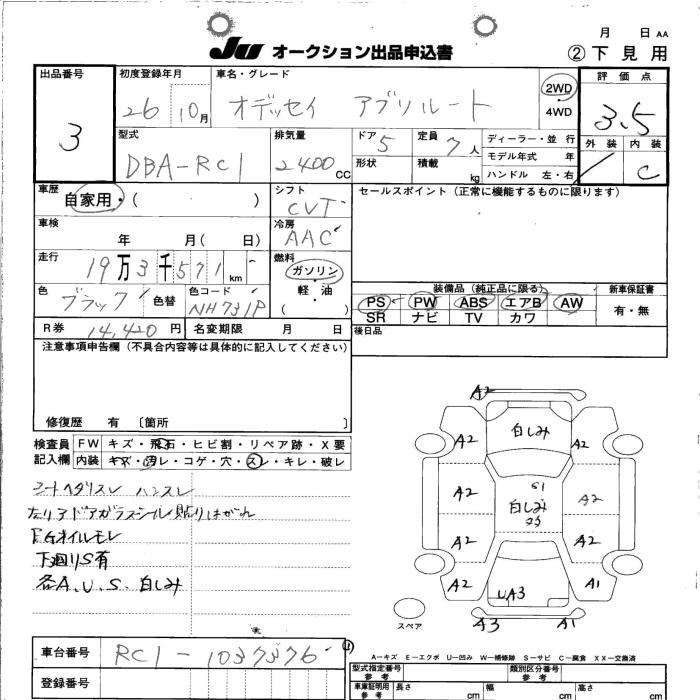 JU オークション出品申込書
月 日 AA
②下見用
出品番号
3
初度登録年月
26 10月
車名・グレード
オデッセイ アブソルート
2WD
4WD
評価点
3.5
外装 内装
C
型式
DBA-RC1
排気量
2400 CC
ドア 5
形状
定員 7 人
積載 kg
ディーラー・並 行
モデル年式 年
ハンドル 左・右
車歴
自家用・( )
シフト
CVT
セールスポイント(正常に機能するものに限ります)
車検
年 月( 日)
冷房
AAC
走行
19万3千571km
燃料
ガソリン
軽・油
( )
色
ブラック
色替
色コード
NH731P
装備品(純正品に限る)
PS PW ABS エアB AW
SR ナビ TV カワ
新車保証書
有・無
R券 14,420 円
名変期限 月 日
後日品
注意事項申告欄(不具合内容等は具体的に記入してください)
修復歴 有 〔箇所 〕
検査員 FW キズ・飛石・ヒビ割・リペア跡・X要
記入欄 内装 キズ・汚レ・コゲ・穴・スレ・キレ・破レ
シートヘタリスレ ハンスレ
左リアドアガラスシール貼りはがれ
EGオイルモレ
下廻りS有
各A、U、S、白しみ
A2
A2 白しみ A2
S1
A2 白しみ A2
A2 A2
A2 UA3 A1
A3 A1
スペア
A-キズ E-エクボ U-凹み W-補修跡 S-サビ C-腐食 XX-交換済
車台番号
RC1-1037376
登録番号
型式指定番号
参考
類別区分番号
参考
車庫証明用
参考
長さ cm
幅 cm
高さ cm